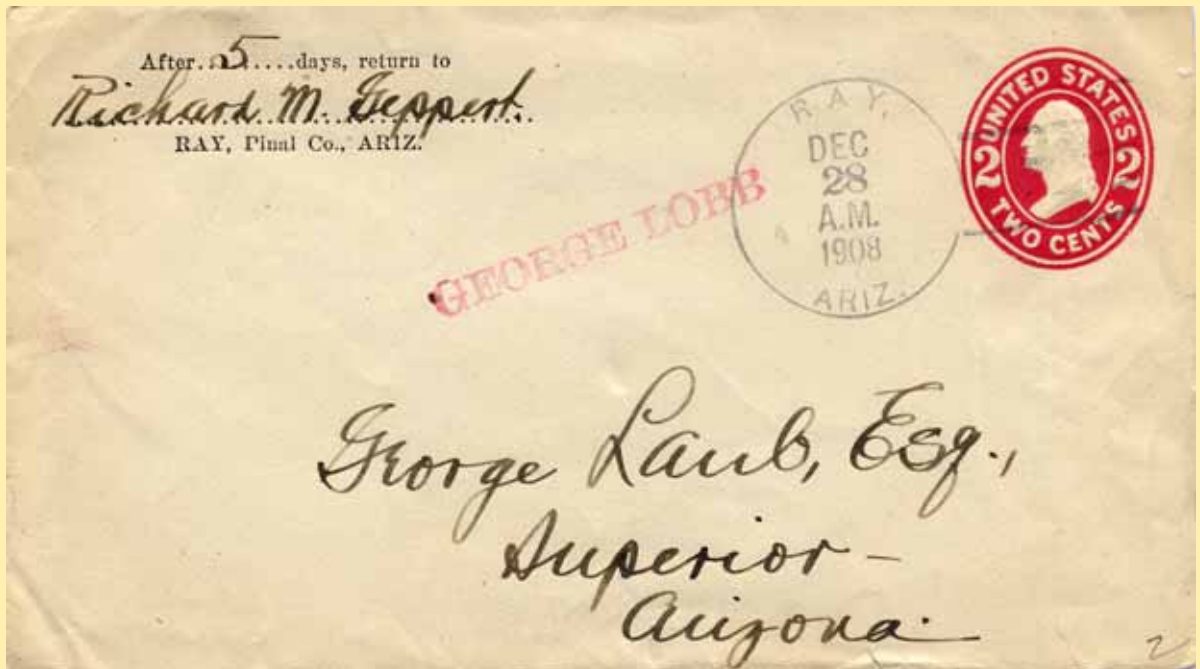 After..5....days, return to
Richard M. Geppert.
RAY, Pinal Co., ARIZ.
RAY,
DEC
28
A.M.
1908
ARIZ.
UNITED STATES
2 2
TWO CENTS
GEORGE LOBB
George Laub, Esq.,
Superior –
Arizona.
2